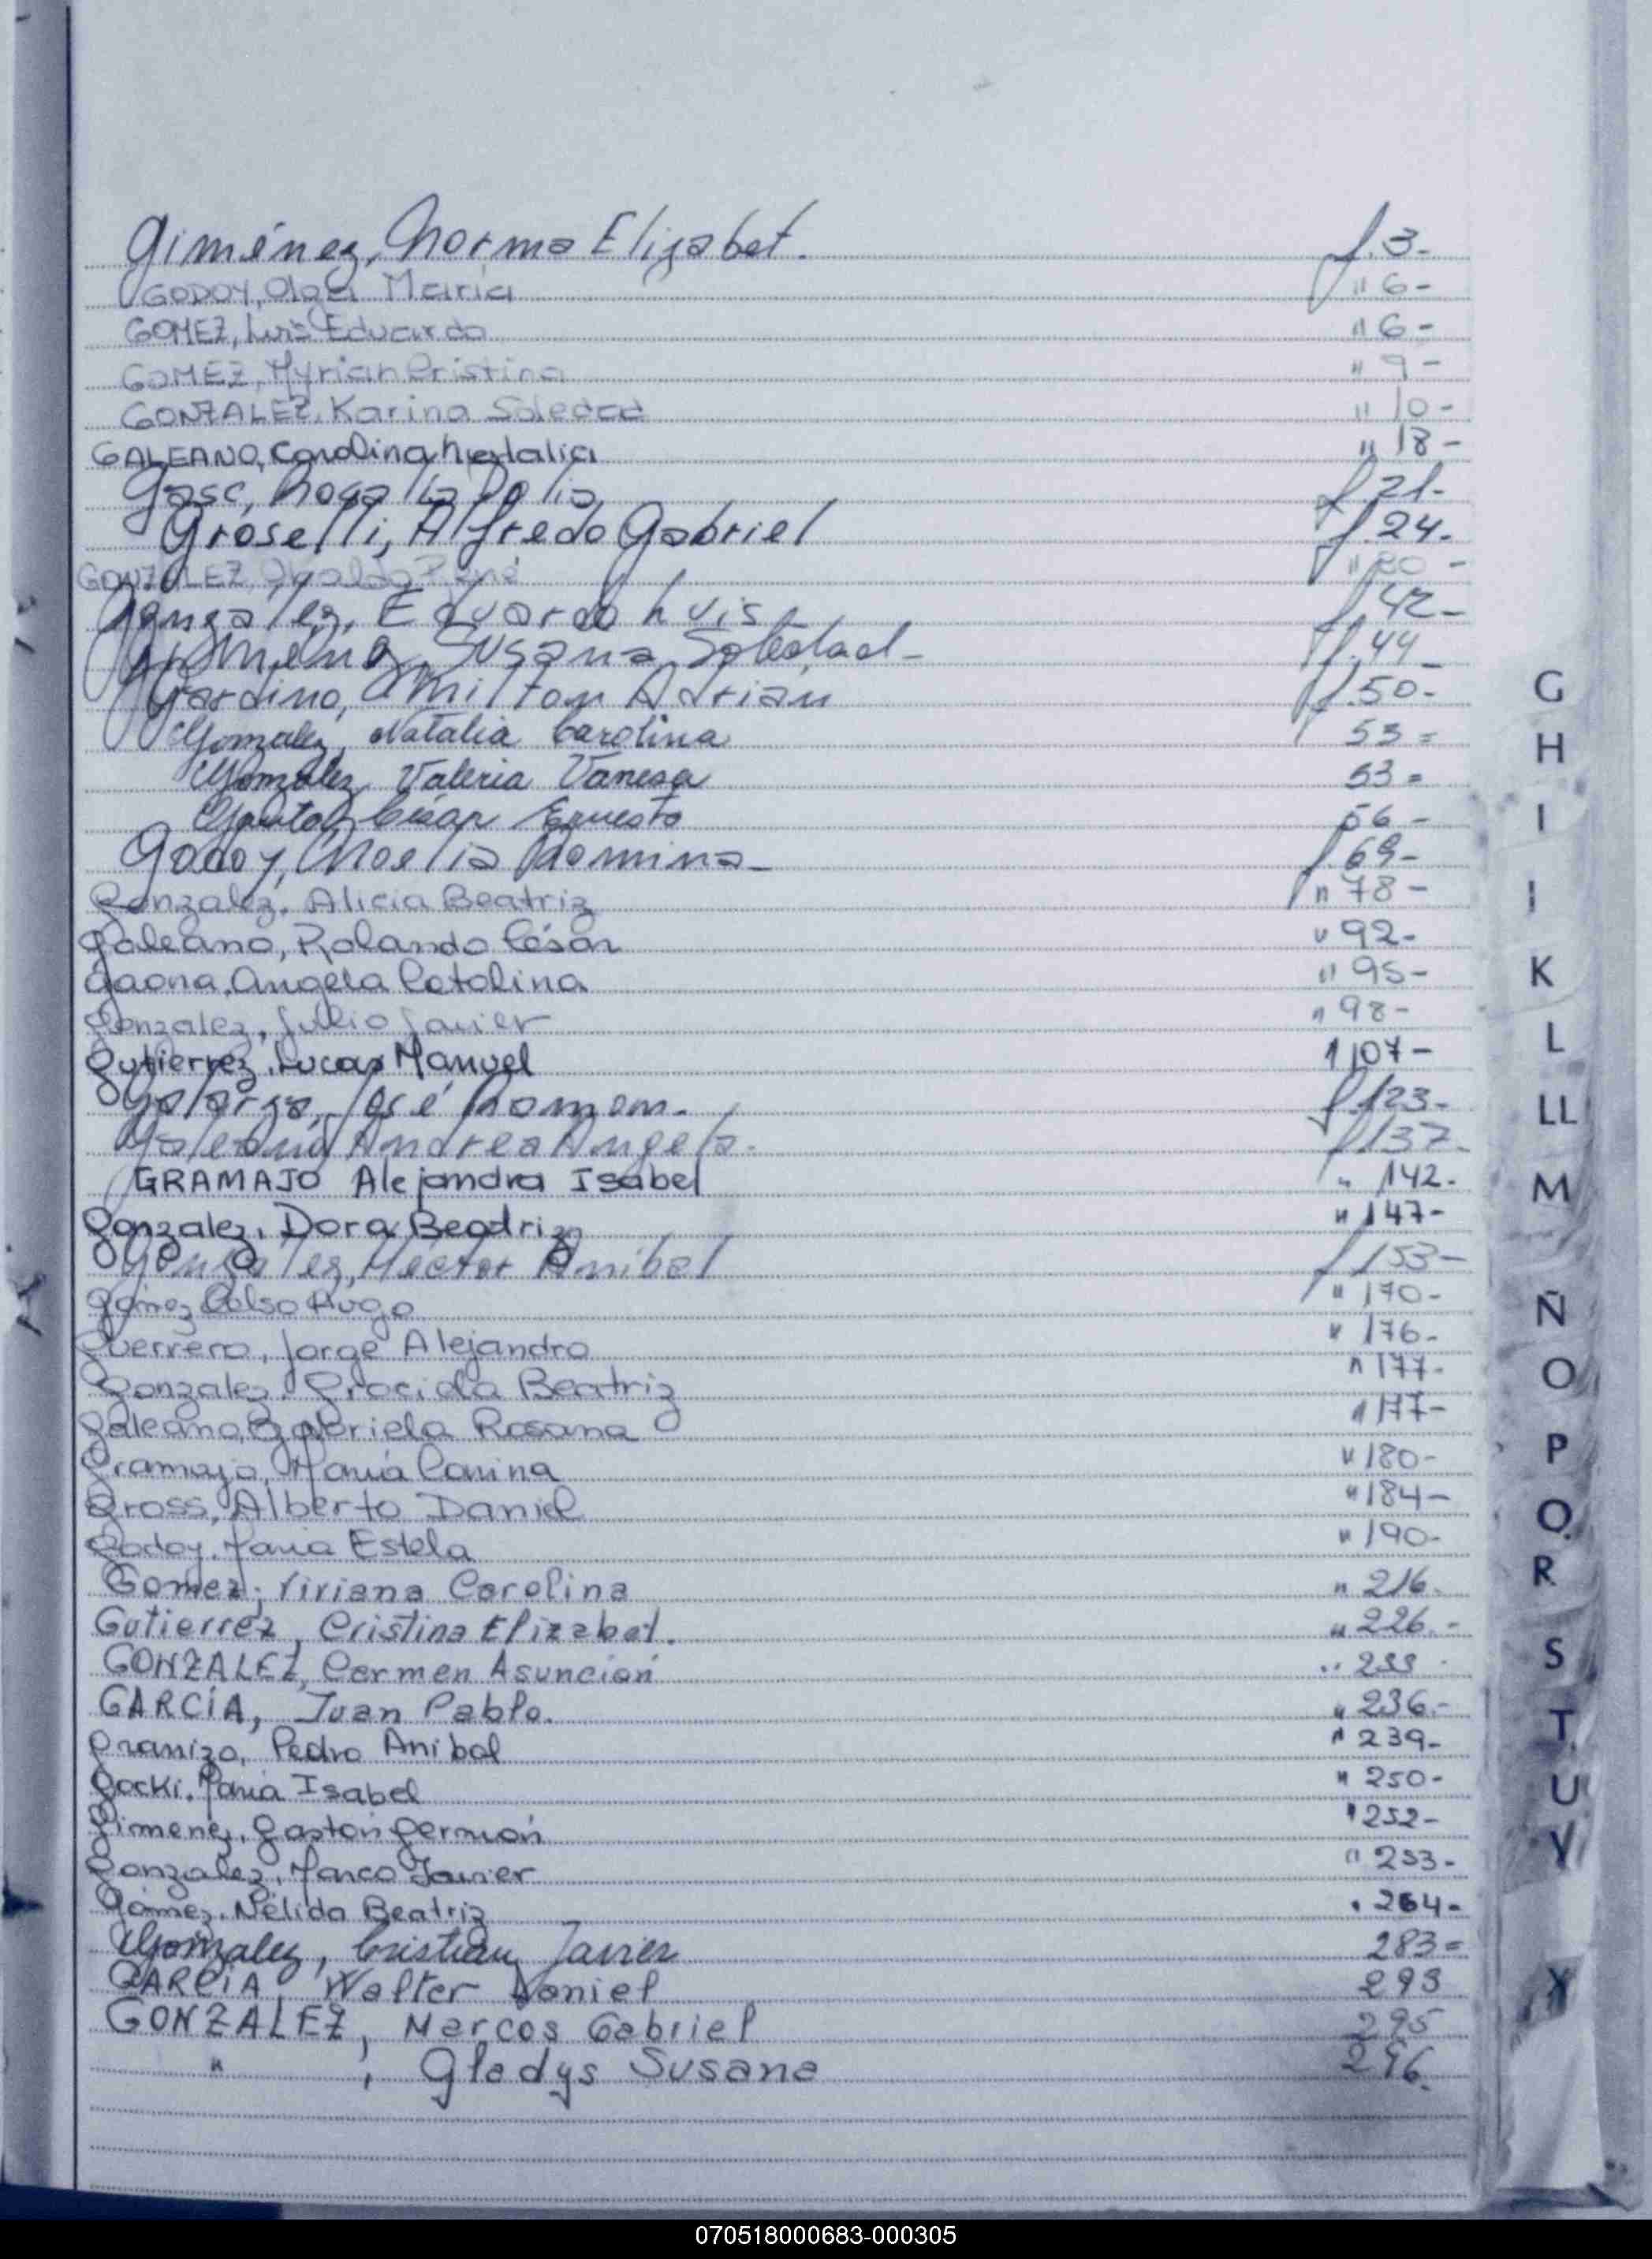 Giménez, Norma Elizabet. f. 3-
GODOY, Olga María " 6-
GOMEZ, Luis Eduardo " 6-
GOMEZ, Myrian Cristina " 9-
GONZALEZ, Karina Soledad " 10-
GALEANO, Carolina Natalia " 18-
Gasc, Rogelia Delia f. 21-
Groselli, Alfredo Gabriel f. 24.
GONZALEZ, René -
González, Eduardo Luis f. 42-
Giménez, Susana Soledad- f. 44
Gardino, Milton Adrián f. 50-
Gonzalez, Natalia Carolina 53=
Gonzalez, Valeria Vanesa 53=
César Ernesto 56-
Godoy, Noelia Romina- f. 69-
Gonzalez, Alicia Beatriz " 78-
Galeano, Rolando César " 92-
Gaona, Angela Catalina " 95-
Gonzalez, Julio Javier " 98-
Gutierrez, Lucas Manuel " 107-
José Ramón. f. 123-
Galeano, Andrea Angela. f 137-
GRAMAJO Alejandra Isabel " 142-
Gonzalez, Dora Beadriz " 147-
González, Héctor Anibal f 153-
Gómez Celso Hugo " 170-
Guerrero, Jorge Alejandro " 176-
Gonzalez, Graciela Beatriz " 177-
Galeano, Gabriela Rosana " 177-
Gramajo, María Carina " 180-
Gross, Alberto Daniel " 184-
Godoy, María Estela " 190-
Gomez, Viviana Carolina " 216.
Gutierrez, Cristina Elizabet. " 226.-
GONZALEZ, Carmen Asunción " 233
GARCÍA, Juan Pablo. " 236.-
Granizo, Pedro Anibal " 239-
Gocki, María Isabel " 250-
Gimenez, Gastón Germán " 252-
Gonzalez, Marco Javier " 253-
Gómez, Nélida Beatriz " 264-
Gonzalez, Cristian Javier 283=
GARCÍA, Walter Daniel 293
GONZALEZ, Marcos Gabriel 295
" , Gladys Susana 296.
G
H
I
I
K
L
LL
M
Ñ
O
P
Q
R
S
T
U
V
X
070518000683-000305